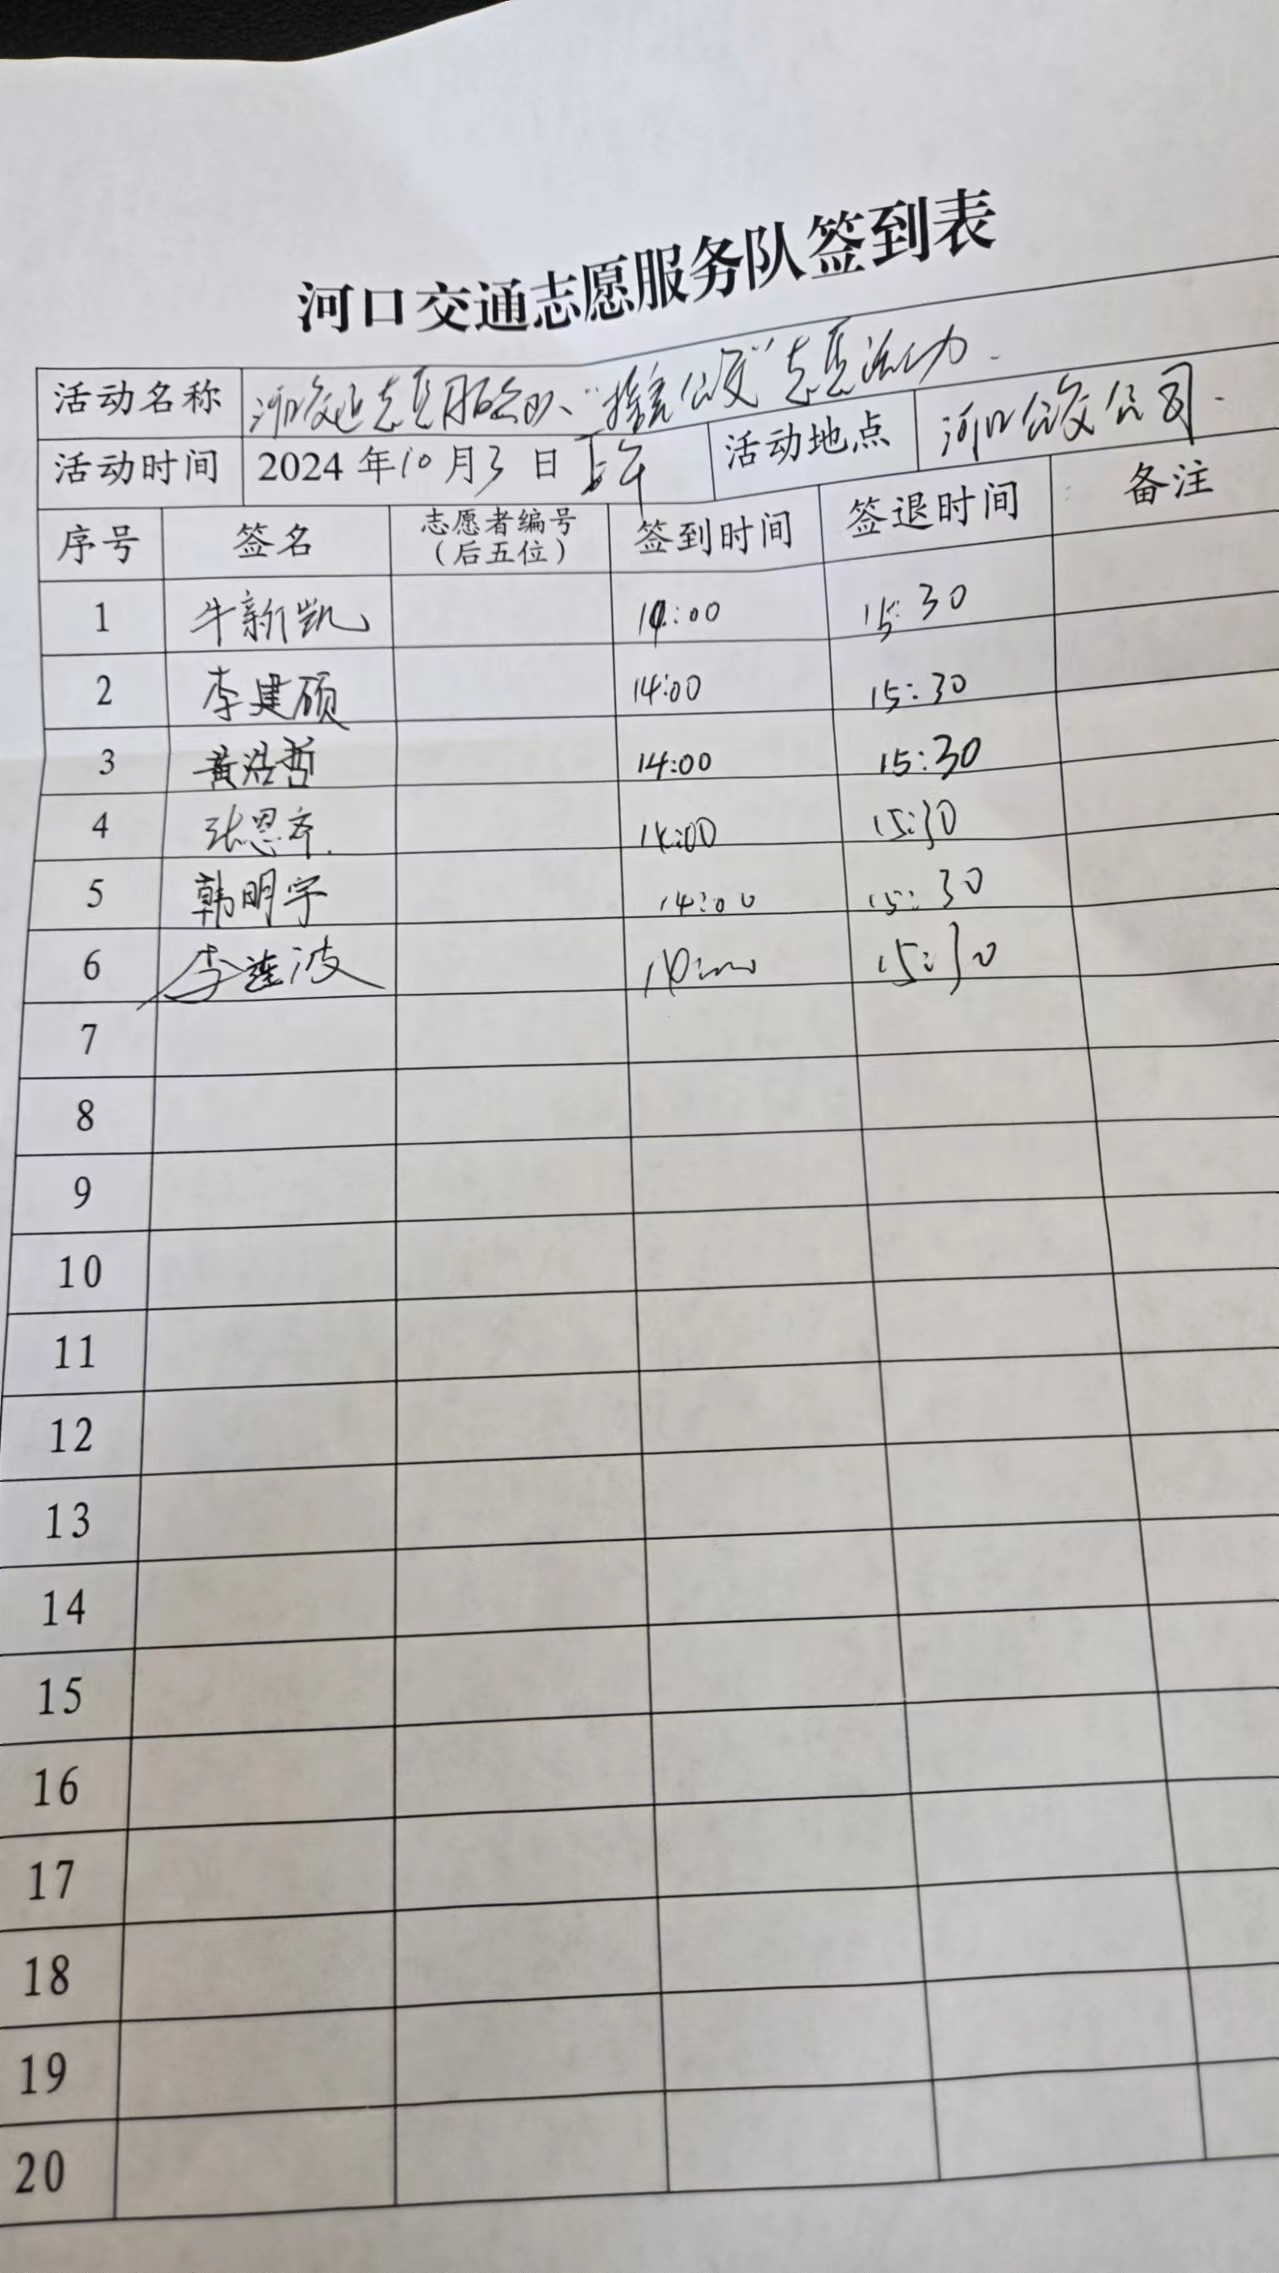 河口交通志愿服务队签到表
活动名称 河口交通志愿服务队“擦亮公交”志愿活动.
活动时间 2024年10月3日 上午 活动地点 河口公交公司.
序号 签名 志愿者编号（后五位） 签到时间 签退时间 备注
1 牛新凯 14:00 15:30
2 李建硕 14:00 15:30
3 黄浩哲 14:00 15:30
4 张恩齐. 14:00 15:30
5 韩明宇 14:00 15:30
6 李莲波 14:00 15:30
7
8
9
10
11
12
13
14
15
16
17
18
19
20